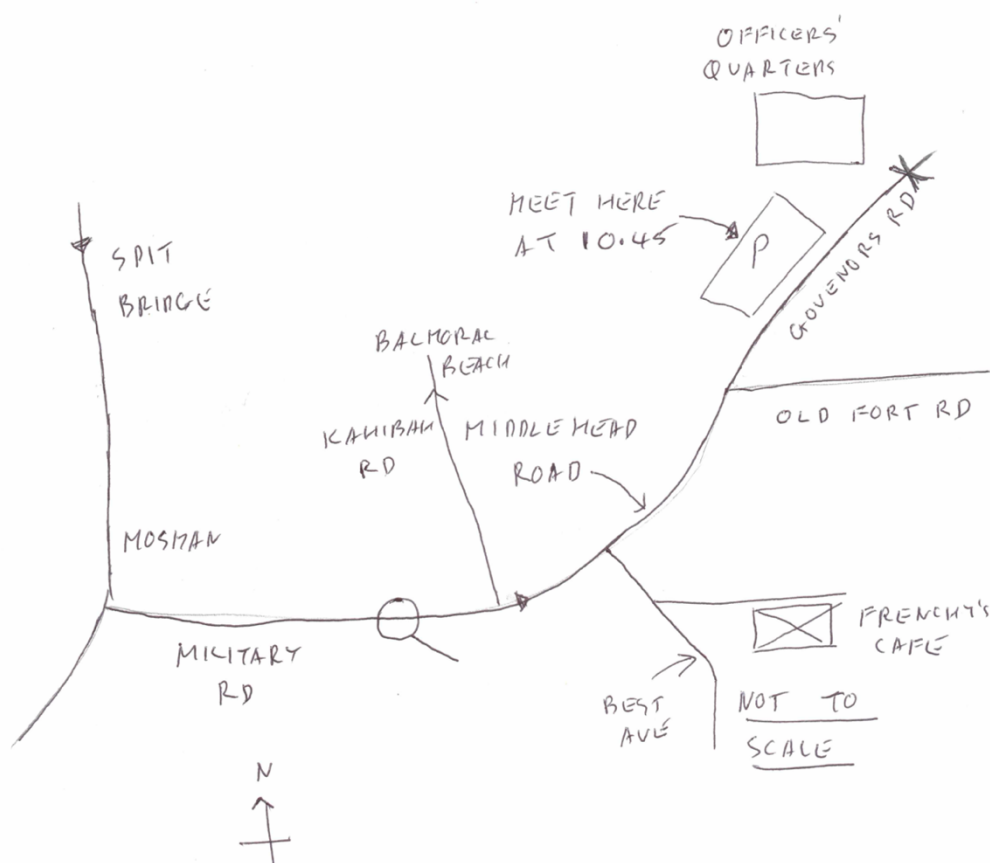 OFFICERS'
QUARTERS
MEET HERE
AT 10.45
P
GOVENORS RD
SPIT
BRIDGE
BALMORAL
BEACH
KAHIBAH
RD
MIDDLE HEAD
ROAD
OLD FORT RD
MOSMAN
MILITARY
RD
FRENCHY'S
CAFE
BEST
AVE
NOT TO
SCALE
N